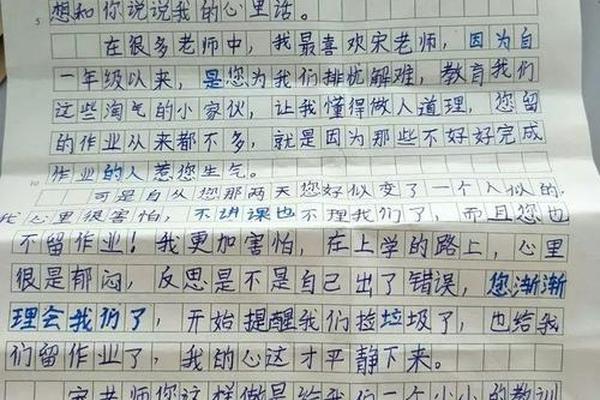 想和你说说我的心里话。
5
在很多老师中，我最喜欢宋老师，因为自
一年级以来，是您为我们排忧解难，教育我们
这些淘气的小家伙，让我懂得做人道理，您留
的作业从来都不多，就是因为那些不好好完成
作业的人惹您生气。
10
可是自从您那两天您好似变了一个人似的，
我心里很害怕，不讲课也不理我们了，而且您也
不留作业！我更加害怕，在上学的路上，心里
很是郁闷，反思是不是自己出了错误，您渐渐
理会我们了，开始提醒我们捡垃圾了，也给我
们留作业了，我的心这才平静下来。
宋老师您这样做是给我们一个小小的教训